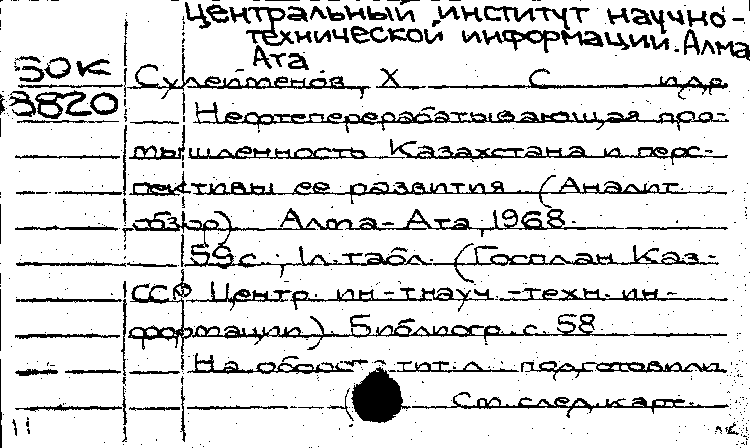 Центральный институт научно-
технической информации. Алма
Ата
50К
3820
Сулейменов, Х С и др
Нефтеперерабатывающая про-
мышленность Казахстана и перс-
пективы ее развития (Аналит
обзор) Алма-Ата, 1968.
59с., 1л.табл. (Госплан Каз-
ССР Центр. ин-т науч.-техн. ин-
формации). Библиогр. с. 58
На обороте тит. л. подготовили
См. след. карт.